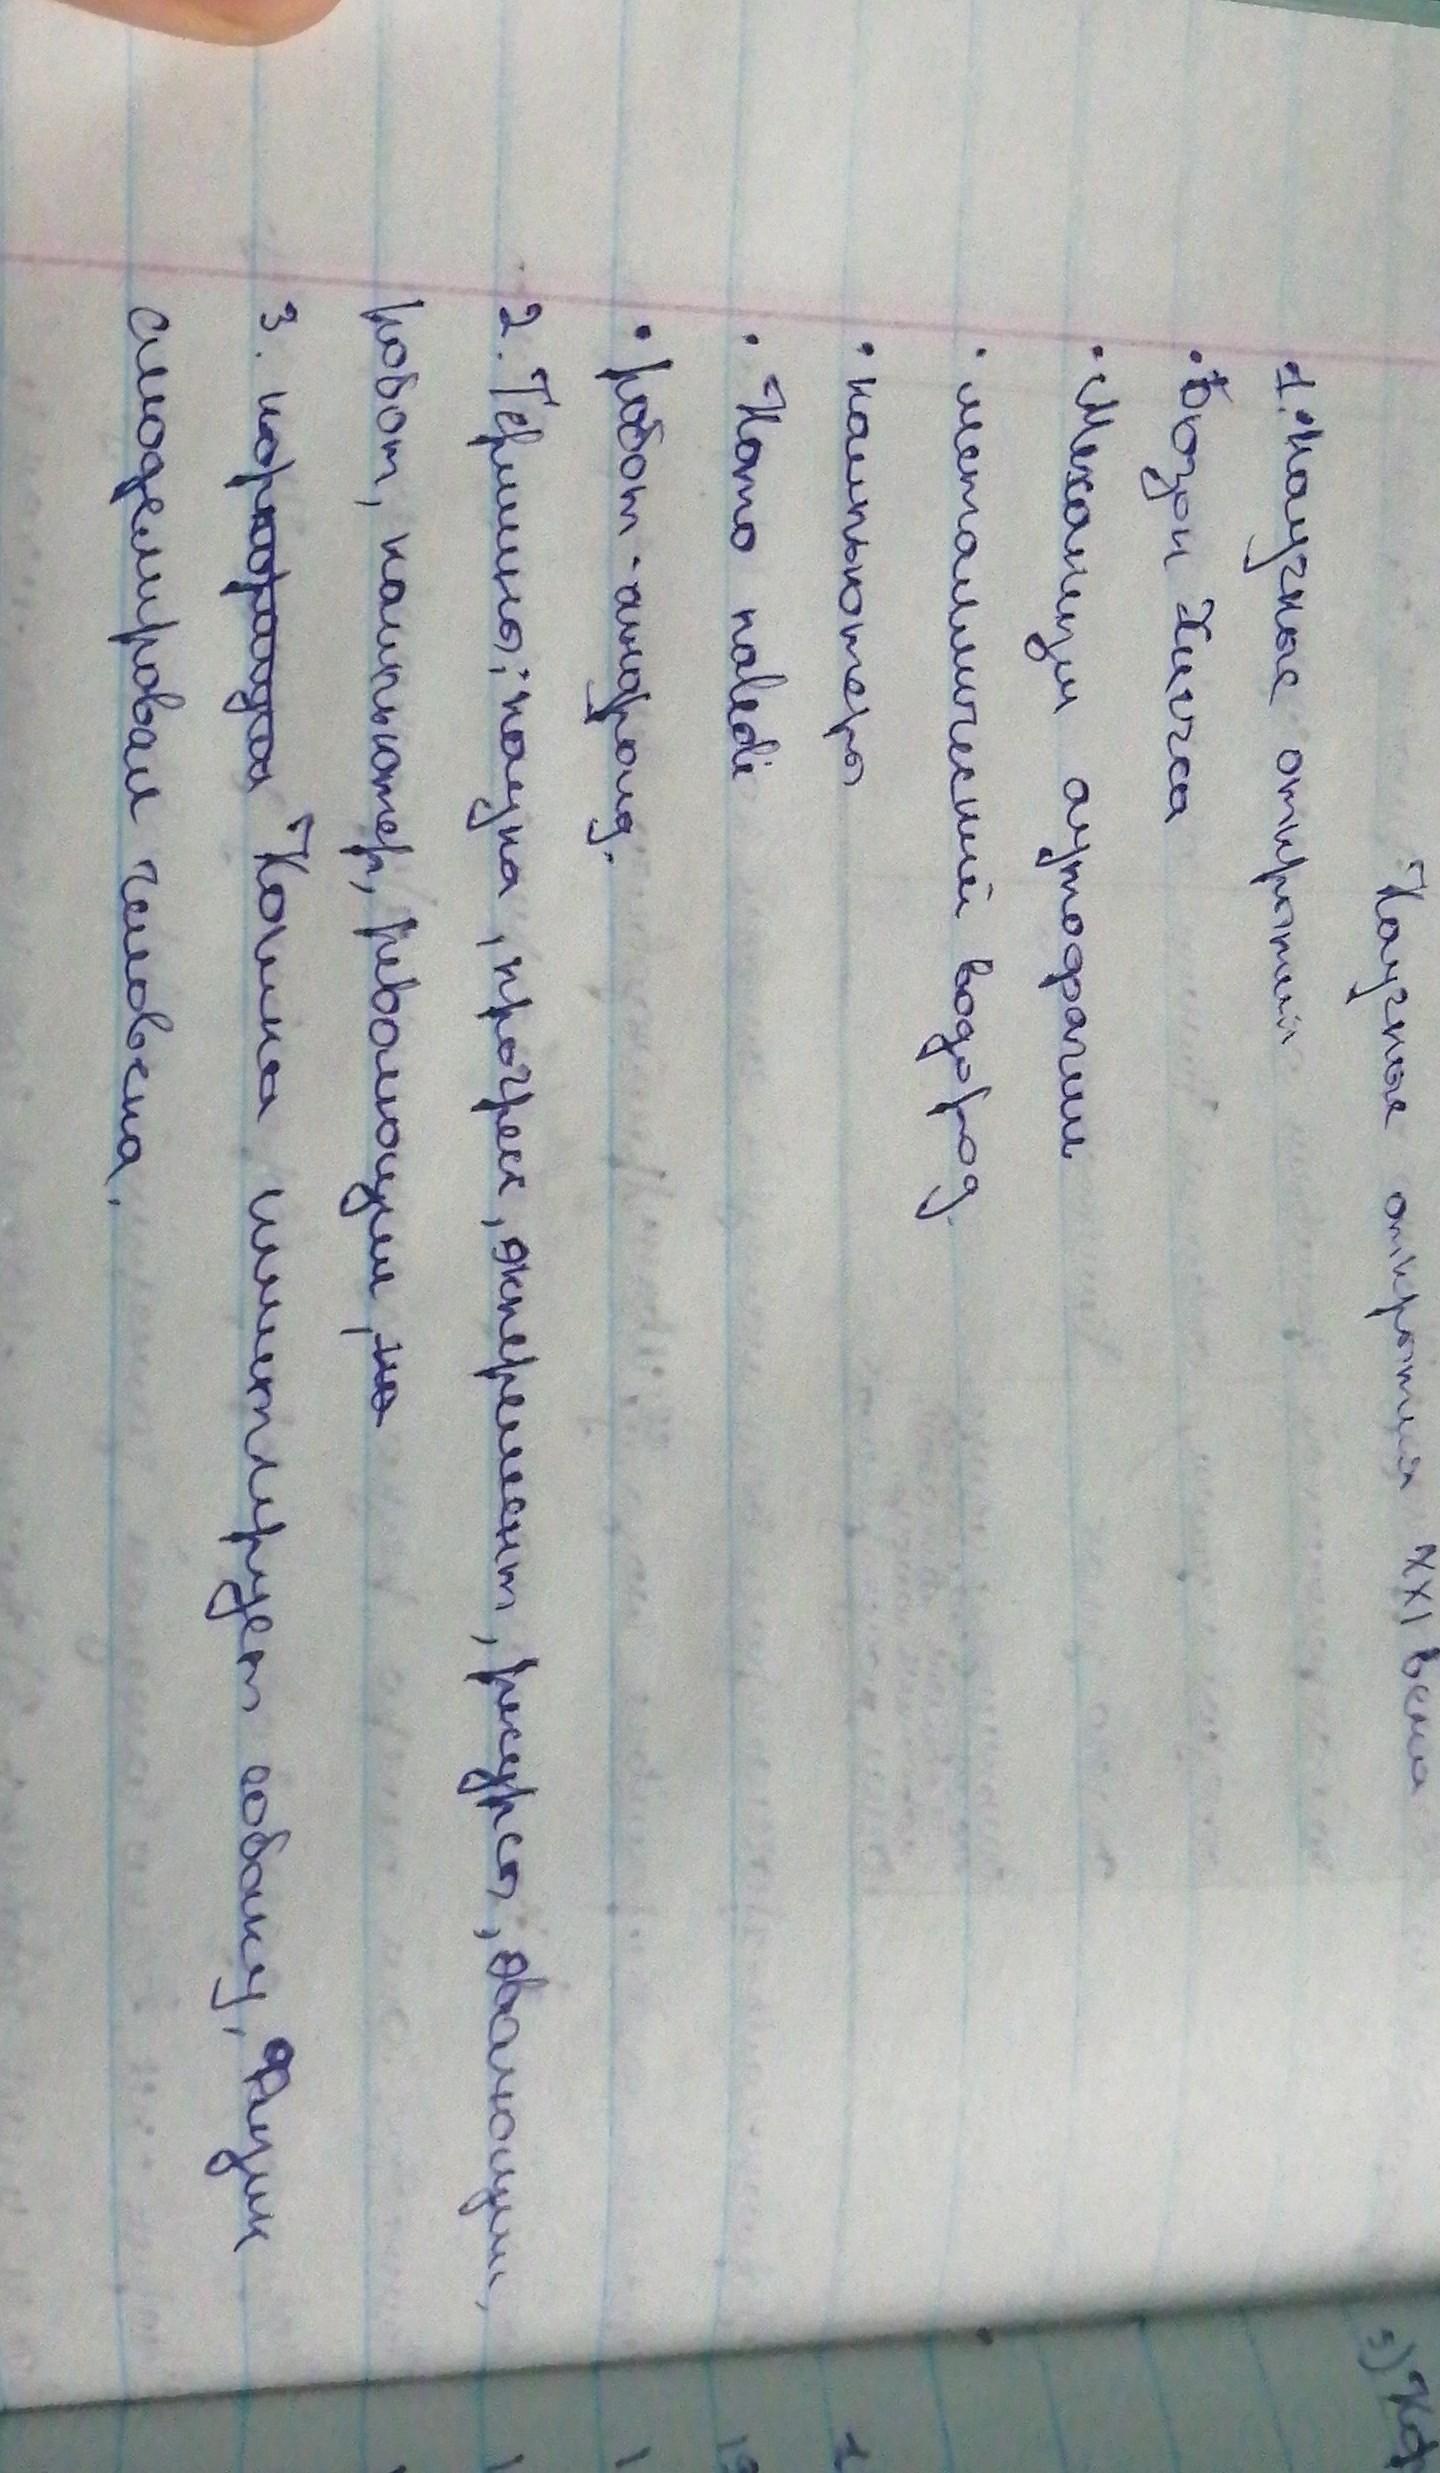 Научные открытия XXI века
1. Научные открытий
• Бозон Хиггса
• Механизм аутофагии
• металлический водород
• компьютеры
• Homo naledi
• робот-андроид.
2. Термины: наука, прогресс, эксперемент, ресурсы, эволюции,
робот, компьютер, революции,
3. Кошка имитирует собаку, Физик
смоделировал человека.
5)
1